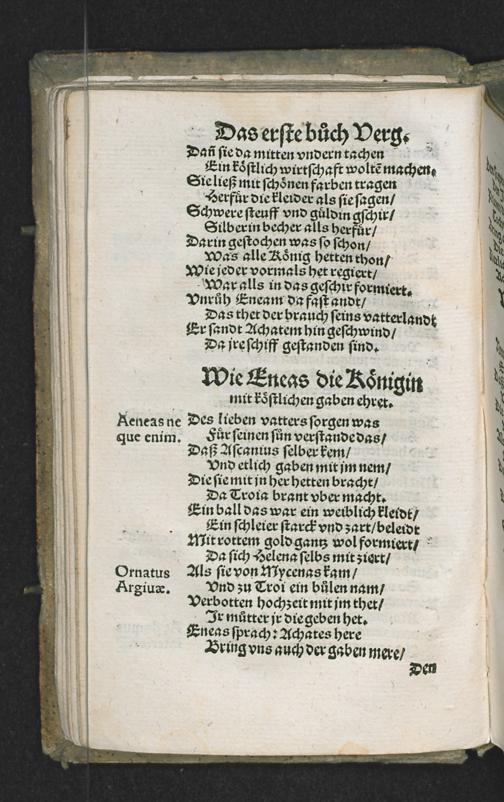 Das erste bůch Verg.
Dañ sie da mitten vndern tachen
Ein köstlich wirtschaft woltẽ machen.
Sie ließ mit schönen farben tragen
Herfür die kleider als sie sagen/
Schwere steuff vnd güldin gschir/
Silberin becher alls herfür/
Darin gestochen was so schon/
Was alle König hetten thon/
Wie jeder vormals het regiert/
War alls in das geschir formiert.
Vnrůh Eneam da fast andt/
Das thet der brauch seins vatterlandt
Er sandt Achatem hin geschwind/
Da jre schiff gestanden sind.
Wie Eneas die Königin
mit köstlichen gaben ehret.
Aeneas ne
que enim.
Des lieben vatters sorgen was
Für seinen sůn verstande das/
Daß Ascanius selber kem/
Vnd etlich gaben mit jm nem/
Die sie mit in her hetten bracht/
Da Troia brant vber macht.
Ein ball das war ein weiblich kleidt/
Ein schleier starck vnd zart/beleidt
Mit rottem gold gantz wol formiert/
Da sich Helena selbs mit ziert/
Ornatus
Argiuæ.
Als sie von Mycenas kam/
Vnd zu Troi ein bůlen nam/
Verbotten hochzeit mit jm thet/
Jr můtter jr die geben het.
Eneas sprach: Achates here
Bring vns auch der gaben mere/
Den